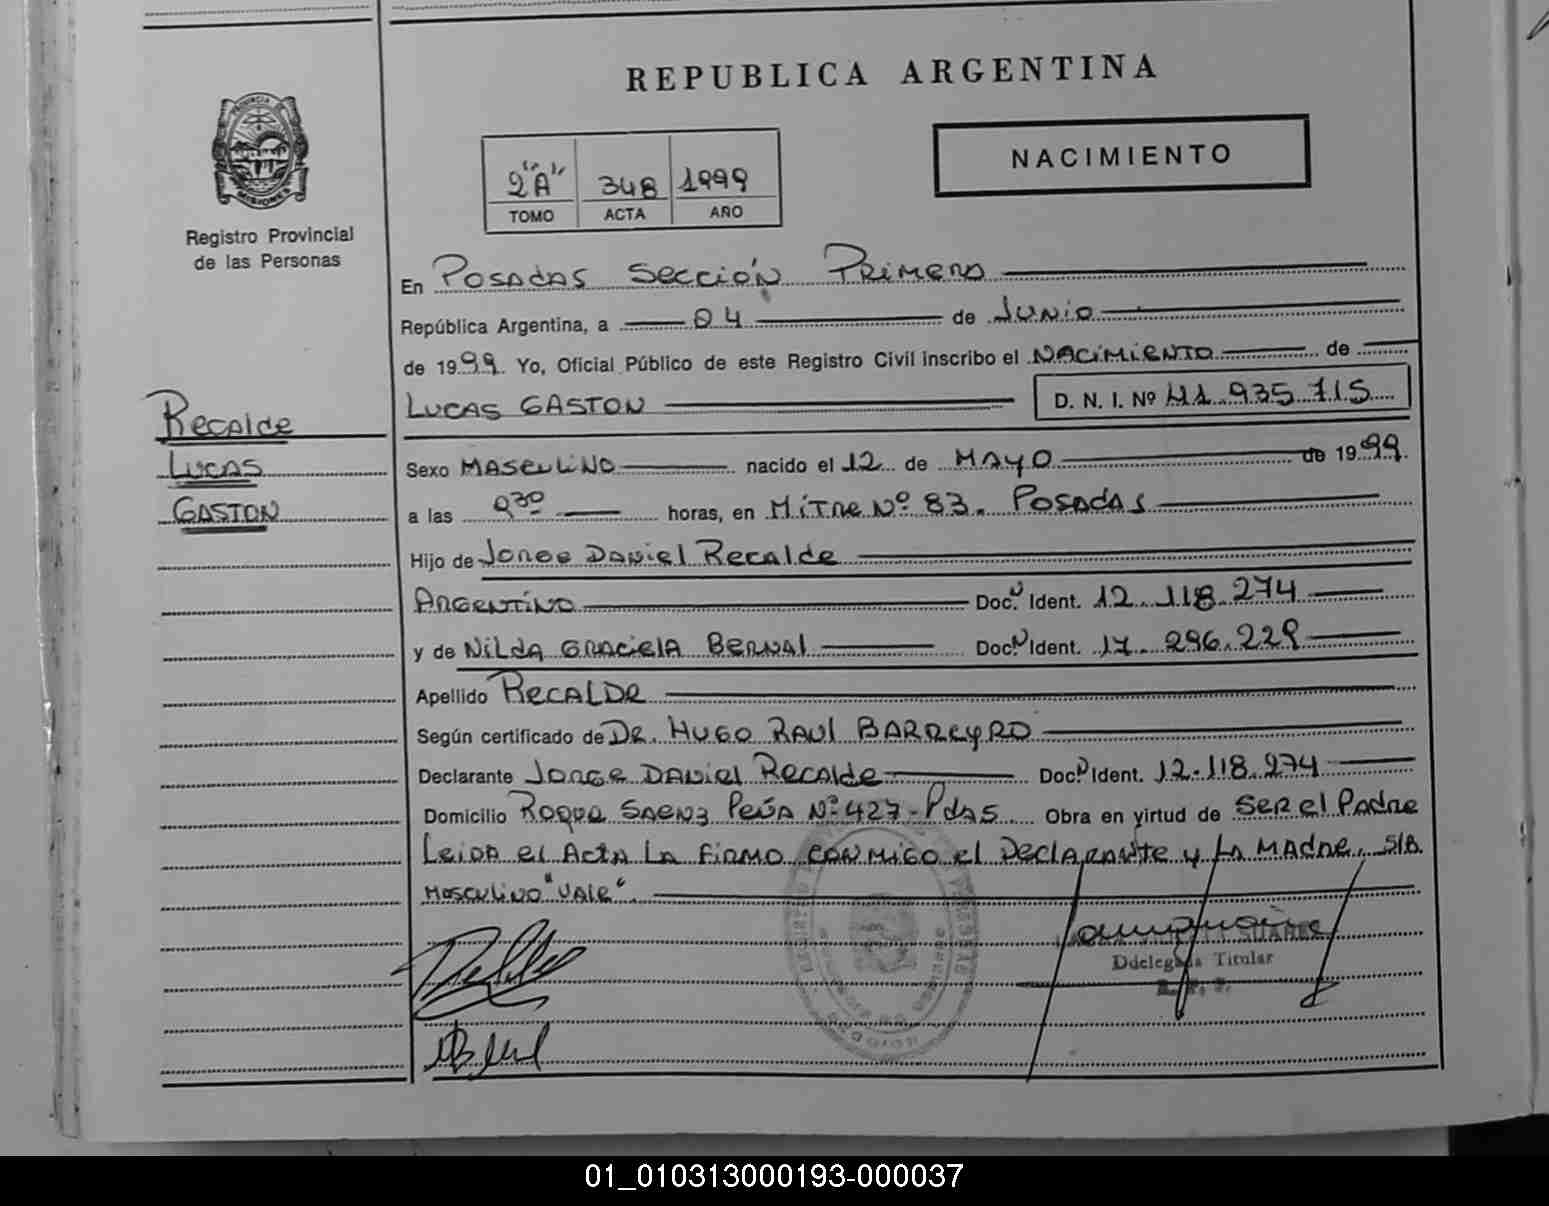 REPUBLICA ARGENTINA
PROVINCIA DE
MISIONES
Registro Provincial
de las Personas
2º "A" 348 1999
TOMO ACTA AÑO
NACIMIENTO
En Posadas Sección Primera
República Argentina, a 04 de Junio
de 1999 Yo, Oficial Público de este Registro Civil inscribo el NACIMIENTO de
LUCAS GASTON D. N. I. Nº 41.935.715
Recalde
Lucas
GASTON
Sexo MASCULINO nacido el 12 de MAYO de 1999
a las 930 horas, en Mitre Nº 83. Posadas
Hijo de Jorge Daniel Recalde
Argentino Doc. Ident. 12.118.274
y de Nilda Graciela Bernal Doc. Ident. 17.296.229
Apellido RECALDE
Según certificado de DR. HUGO RAUL BARREYRO
Declarante Jorge Daniel Recalde Doc. Ident. 12.118.274
Domicilio Roque Saenz Peña Nº 427-Pdas Obra en virtud de ser el Padre
Leida el Acta la firmo conmigo el Declarante y la Madre. S/B
Masculino "Vale".
SUAREZ
Ddelegada Titular
01_010313000193-000037